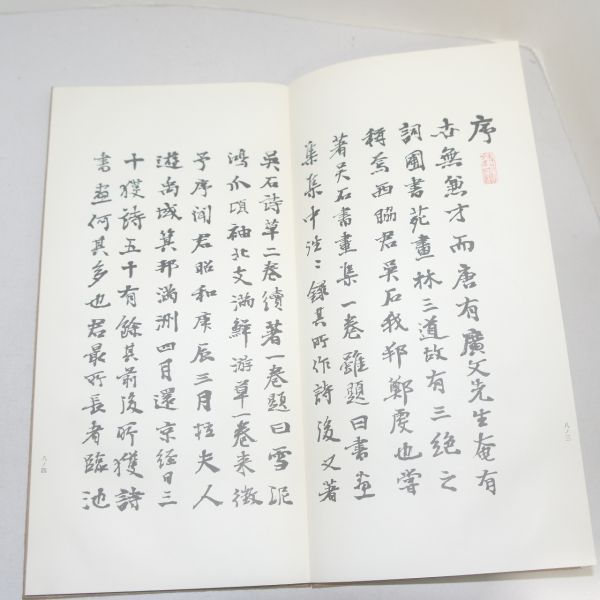 序
古無兼才而唐有廣文先生奄有
詞圃書苑畫林三道故有三絶之
稱焉西脇君吳石我邦鄭虔也嘗
著吳石書畫集一卷雖題曰書畫
集集中往〻錄其所作詩後又著
吳石詩草二卷續著一卷題曰雪泥
鴻爪頃袖北支滿鮮游草一卷来徵
予序聞君昭和庚辰三月拉夫人
遊禹域箕邦滿洲四月還京經日三
十獲詩五十有餘其前後所獲詩
書畫何其多也君最所長者臨池
八ノ三
八ノ四